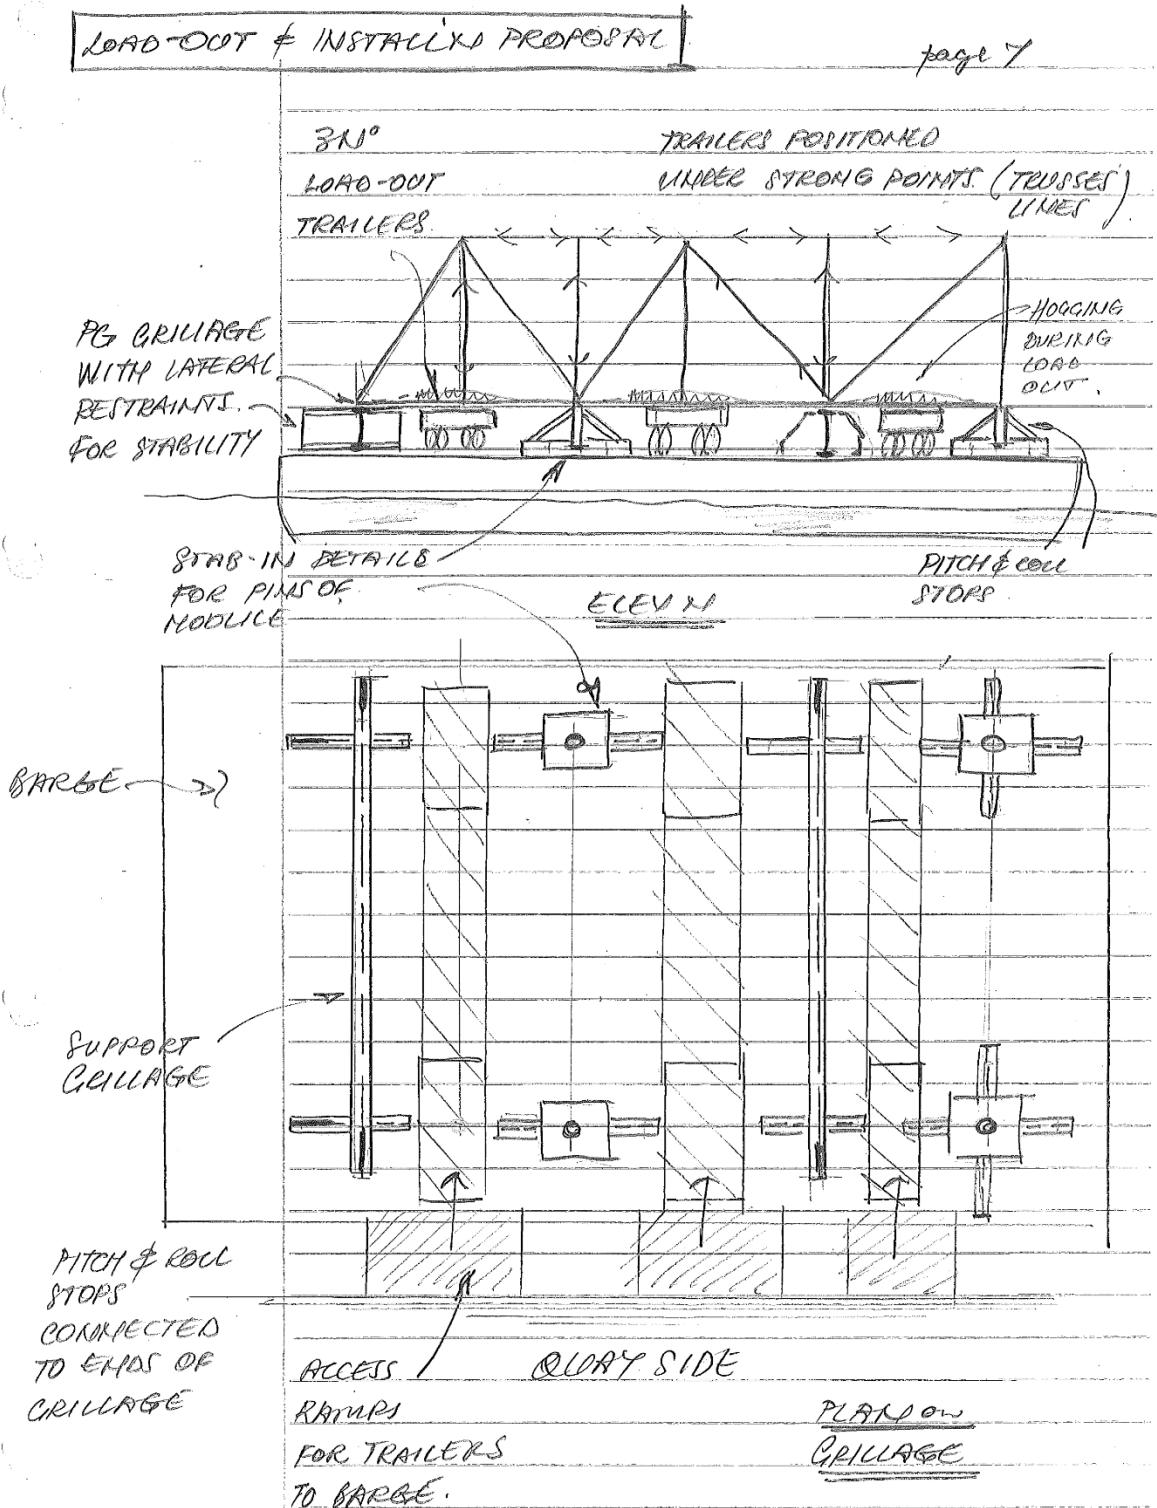 LOAD-OUT & INSTALL'XN PROPOSAL
page 7
3Nº
LOAD-OUT
TRAILERS
TRAILERS POSITIONED
UNDER STRONG POINTS. (TRUSSES)
LINES
PG GRILLAGE
WITH LATERAL
RESTRAINTS.
FOR STABILITY
HOGGING
DURING
LOAD
OUT.
STAB-IN DETAILS
FOR PINS OF
MODULE
ELEV XN
PITCH & ROLL
STOPS
BARGE
SUPPORT
GRILLAGE
PITCH & ROLL
STOPS
CONNECTED
TO ENDS OF
GRILLAGE
ACCESS
RAMPS
FOR TRAILERS
TO BARGE.
QUAY SIDE
PLAN ON
GRILLAGE